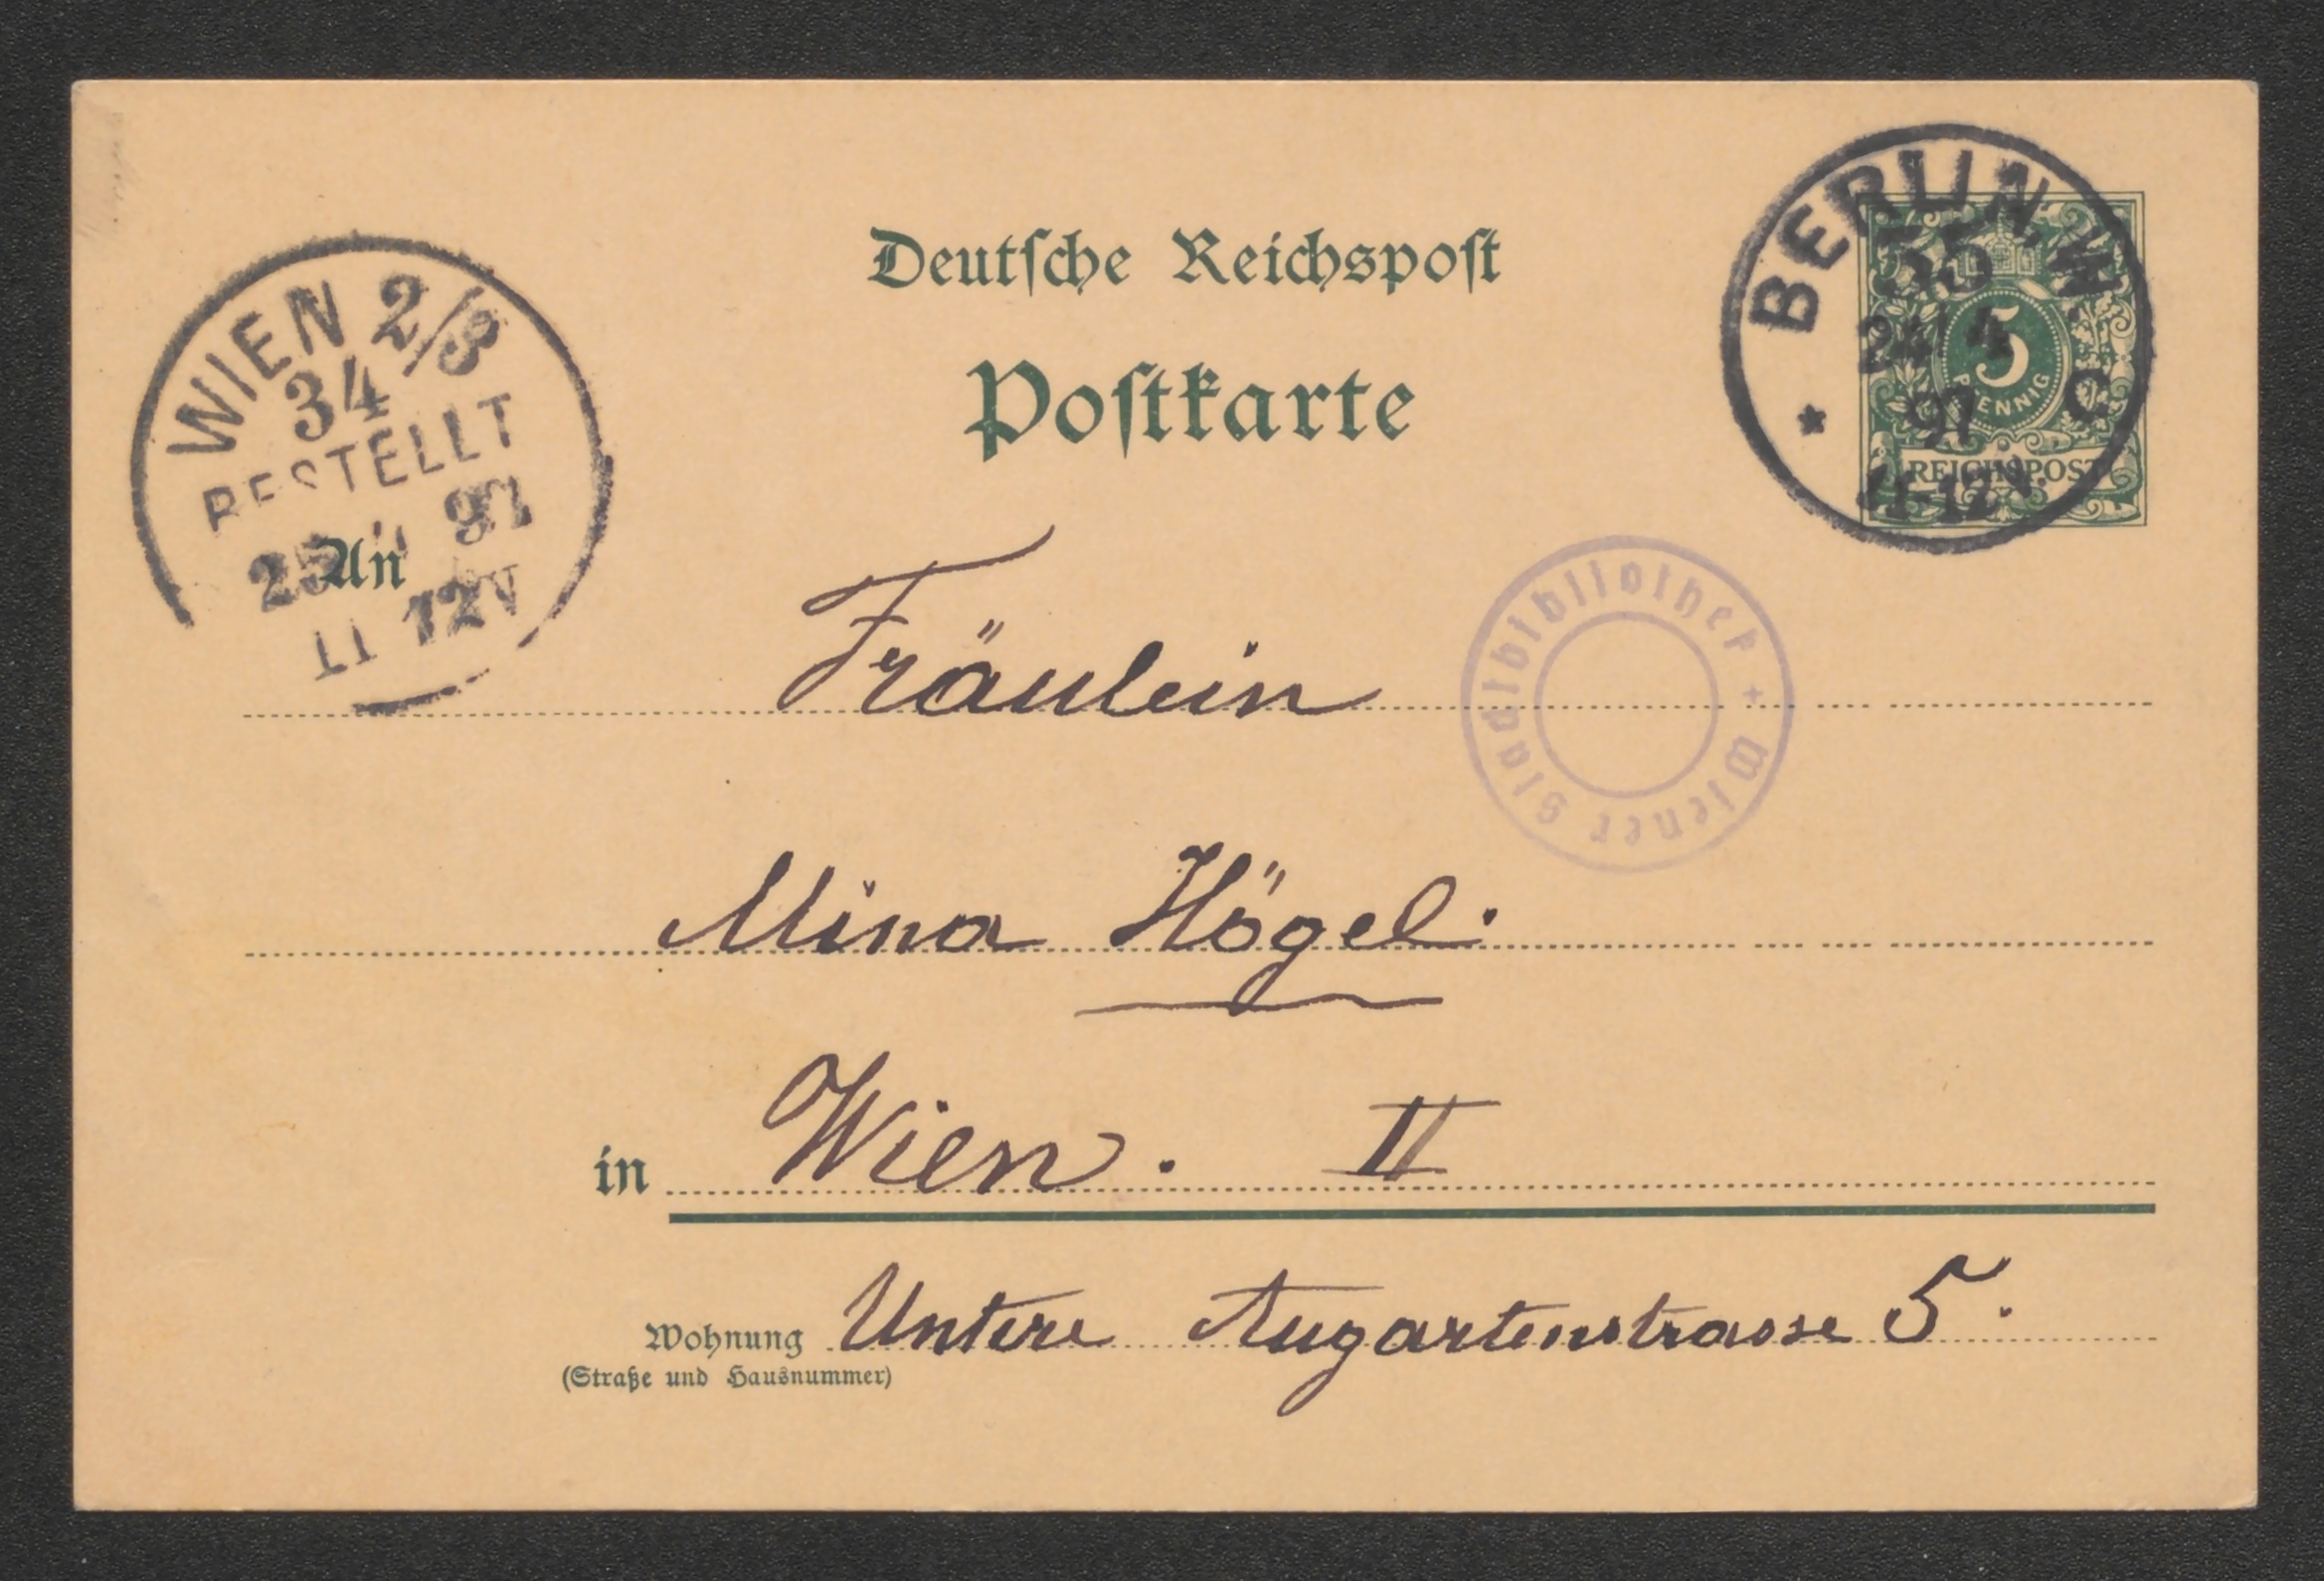 Deutsche Reichspost
Postkarte
BERLIN, W.
35
24/4
97
C
11-12V.
5
PFENNIG
REICHSPOST
WIEN 2/3
34
BESTELLT
25 97
11 12V
An
Fräulein
Wiener Stadtbibliothek +
Mina Högel.
in Wien. II
Wohnung Untere Augartenstrasse 5.
(Straße und Hausnummer)